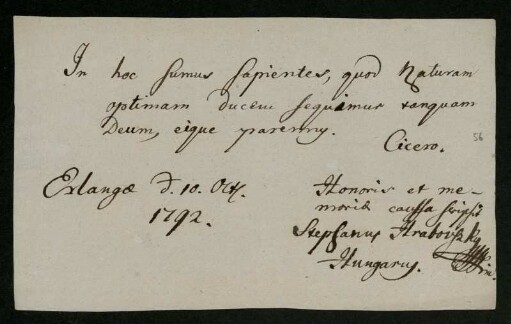 In hoc sumus sapientes, quod Naturam
optimam ducem sequimur tanquam
Deum, eique paremus.
Cicero.
56
Erlangæ d. 10. Oct.
1792.
Honoris et me-
moriæ caussa scripsit
Stephanus Hrabovszky
Hungarus.